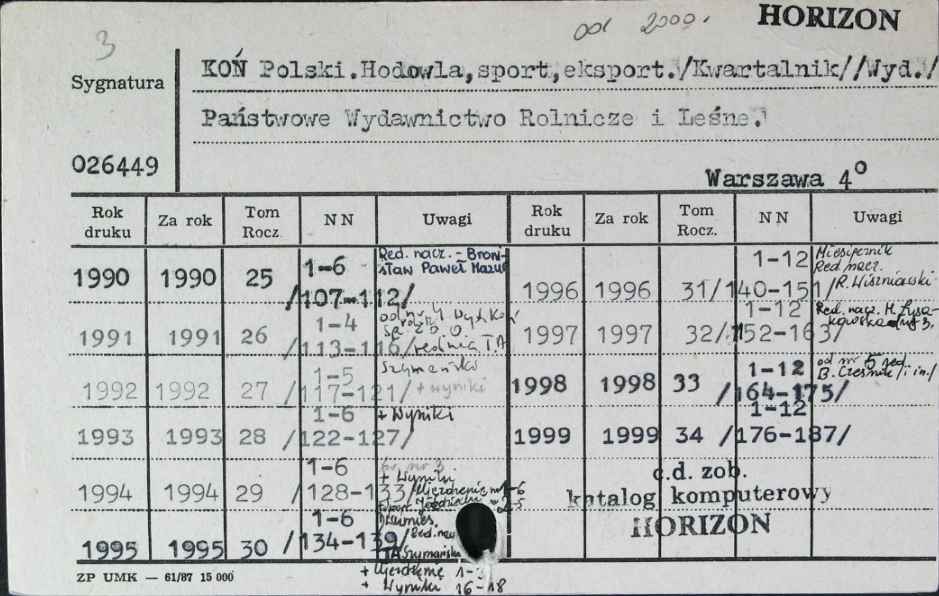 3
od 2000.
HORIZON
Sygnatura
KOŃ Polski.Hodowla,sport,eksport./Kwartalnik//Wyd./
Państwowe Wydawnictwo Rolnicze i Leśne.
026449
Warszawa 4⁰
Rok druku Za rok Tom Rocz. NN Uwagi
1990 1990 25 1-6 /107-112/ Red. nacz. - Bronisław Paweł Mazur
1991 1991 26 1-4 /113-116/
1992 1992 27 1-5 /117-121/ + wyniki
1993 1993 28 1-6 /122-127/ + Wyniki
1994 1994 29 1-6 /128-133/ + Wyniki
1995 1995 30 1-6 /134-139/ Dwumies. /Red. nacz
+ Ujeżdżenie 1-
+ Wyniki 16-18
Rok druku Za rok Tom Rocz. NN Uwagi
1996 1996 31 1-12 /140-151/ Miesięcznik Red. nacz. R. Wiszniowski
1997 1997 32 1-12 /152-163/ Red. nacz. M. Łysakowska
1998 1998 33 1-12 /164-175/ od nr 5 red. B. /i in./
1999 1999 34 1-12 /176-187/
c.d. zob.
katalog komputerowy
HORIZON
ZP UMK — 61/87 15 000